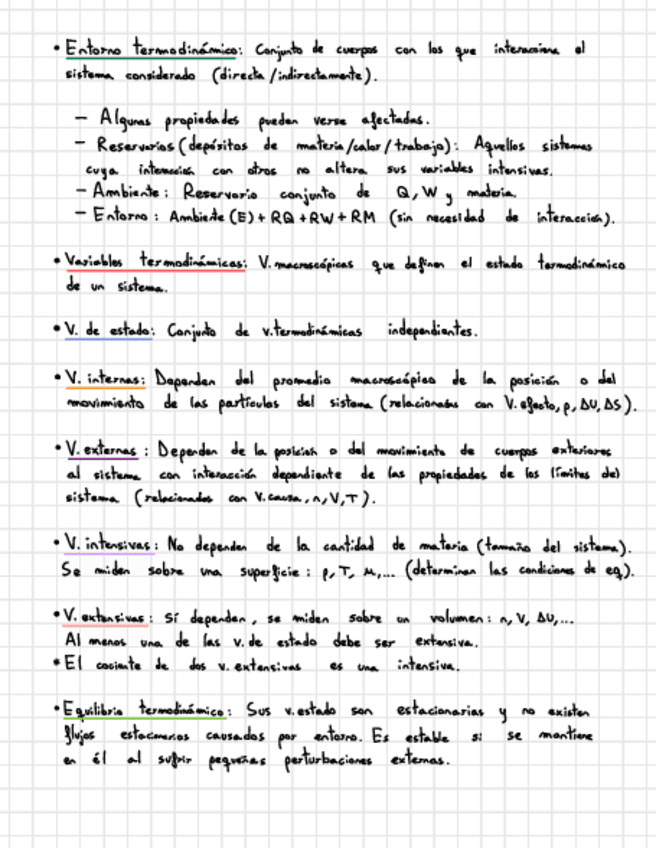 • Entorno termodinámico: Conjunto de cuerpos con los que interacciona el
sistema considerado (directa/indirectamente).
– Algunas propiedades pueden verse afectadas.
– Reservorios (depósitos de materia/calor/trabajo): Aquellos sistemas
cuya interacción con otros no altera sus variables intensivas.
– Ambiente: Reservorio conjunto de Q, W y materia.
– Entorno: Ambiente (E) + RQ + RW + RM (sin necesidad de interacción).
• Variables termodinámicas: V. macroscópicas que definen el estado termodinámico
de un sistema.
• V. de estado: Conjunto de v. termodinámicas independientes.
• V. internas: Dependen del promedio macroscópico de la posición o del
movimiento de las partículas del sistema (relacionadas con V. efecto, p, ΔU, ΔS).
• V. externas: Dependen de la posición o del movimiento de cuerpos exteriores
al sistema con interacción dependiente de las propiedades de los límites del
sistema (relacionadas con V. causa, n, V, T).
• V. intensivas: No dependen de la cantidad de materia (tamaño del sistema).
Se miden sobre una superficie: p, T, μ,... (determinan las condiciones de eq).
• V. extensivas: Sí dependen, se miden sobre un volumen: n, V, ΔU,...
Al menos una de las v. de estado debe ser extensiva.
• El cociente de dos v. extensivas es una intensiva.
• Equilibrio termodinámico: Sus v. estado son estacionarias y no existen
flujos estacionarios causados por entorno. Es estable si se mantiene
en él al sufrir pequeñas perturbaciones externas.